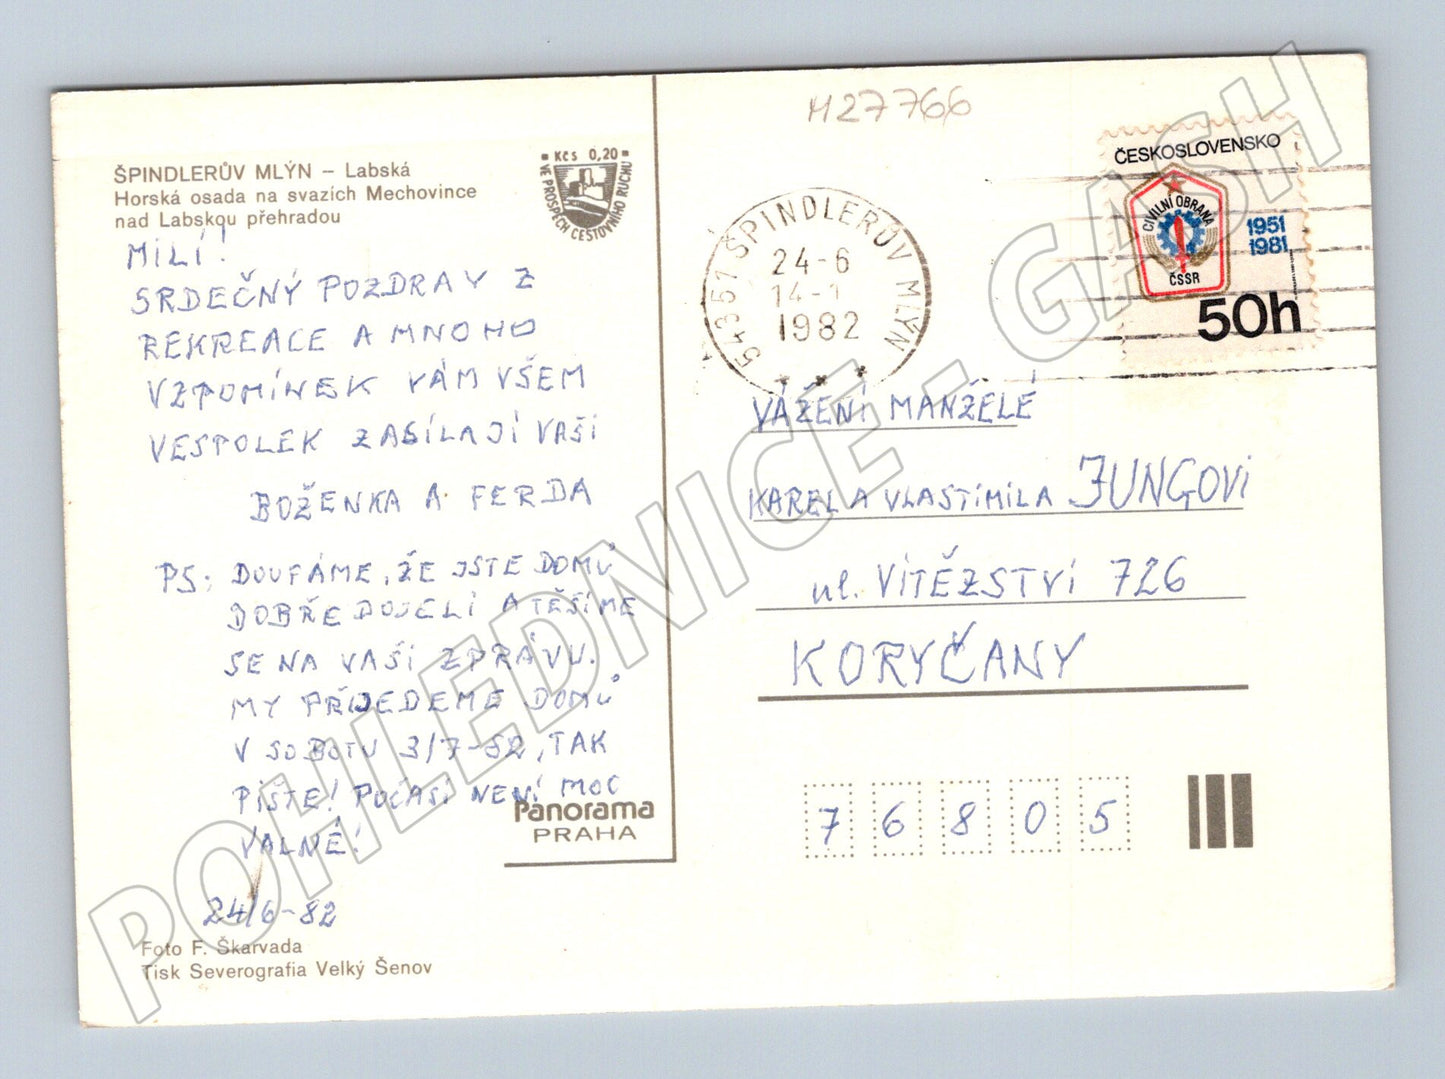 H27766
ŠPINDLERŮV MLÝN – Labská
Horská osada na svazích Mechovince
nad Labskou přehradou
Kčs 0,20
VE PROSPĚCH CESTOVNÍHO RUCHU
MILÍ!
SRDEČNÝ POZDRAV Z
REKREACE A MNOHO
VZPOMÍNEK VÁM VŠEM
VESPOLEK ZASÍLAJÍ VAŠI
BOŽENKA A FERDA
PS: DOUFÁME, ŽE JSTE DOMŮ
DOBŘE DOJELI A TĚŠÍME
SE NA VAŠI ZPRÁVU.
MY PŘIJEDEME DOMŮ
V SOBOTU 3/7-82, TAK
PIŠTE! POČASÍ NENÍ MOC
VALNÉ!
24/6-82
Panorama
PRAHA
Foto F. Škarvada
Tisk Severografia Velký Šenov
54351 ŠPINDLERŮV MLÝN
24-6
1982
ČESKOSLOVENSKO
CIVILNÍ OBRANA
ČSSR
1951
1981
50h
VÁŽENÍ MANŽELÉ
KAREL A VLASTIMILA JUNGOVI
ul. VÍTĚZSTVÍ 726
KORYČANY
76805
POHLEDNICE - GASH